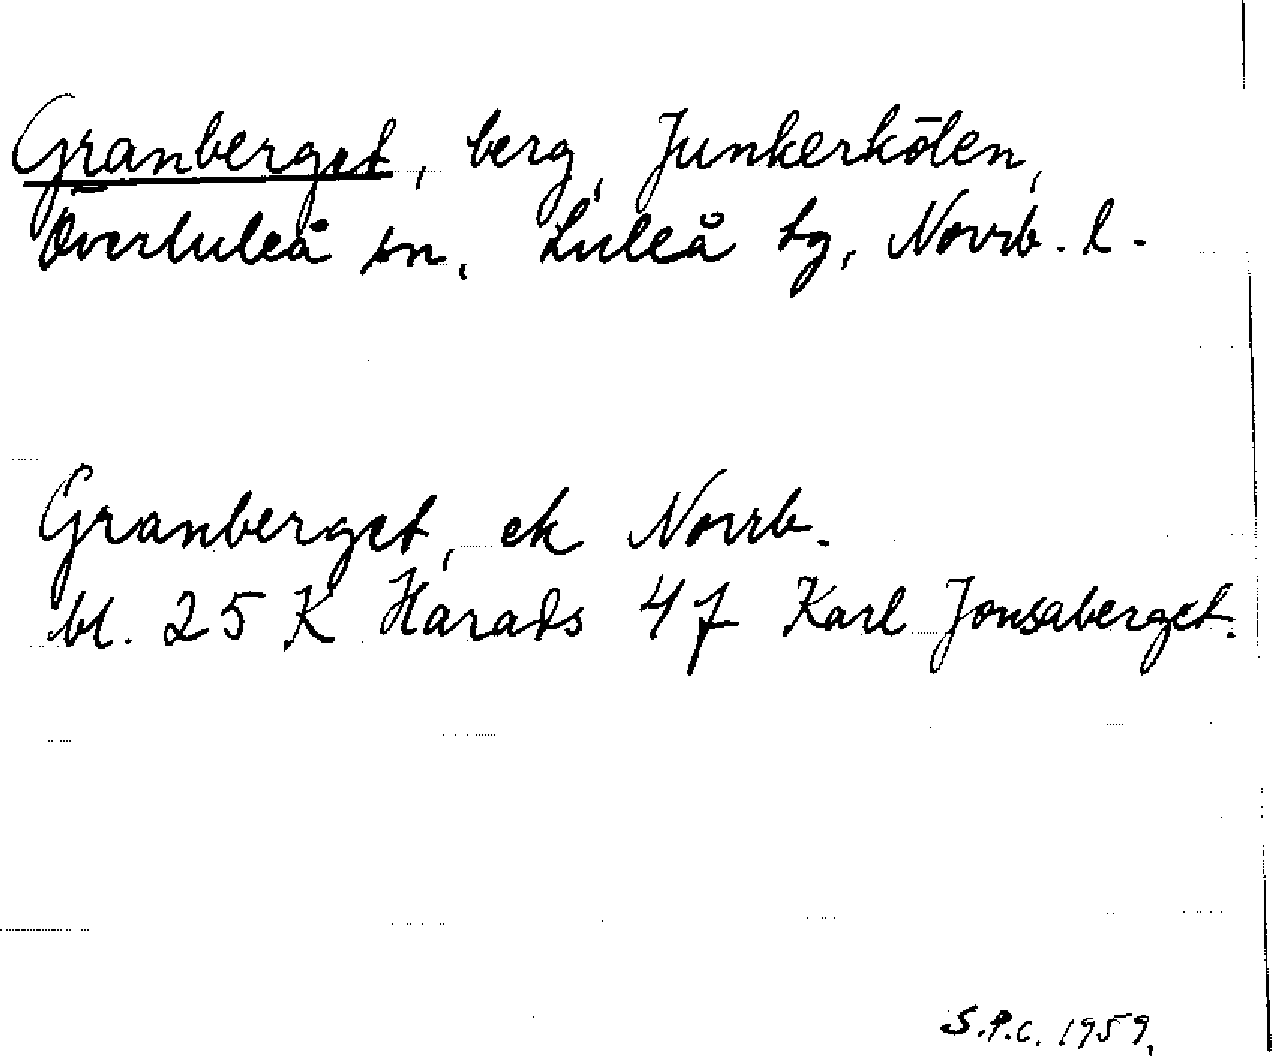 Granberget, berg, Junkerkölen,
Överluleå sn, Luleå tg, Norrb. l.
Granberget, ek Norrb.
bl. 25 K Harads 4 f Karl Jonsaberget.
S.P.C. 1959.